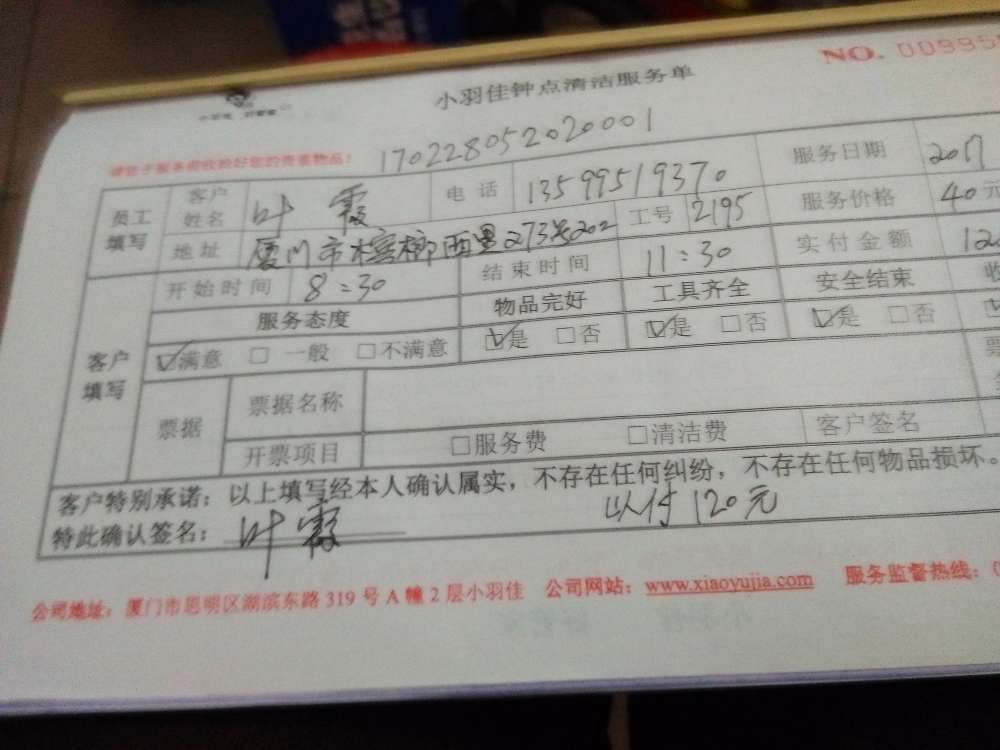 小羽佳钟点清洁服务单 NO. 00995
小羽佳
请您于服务前收拾好您的贵重物品! 170228052020001
员工填写 客户姓名 叶霞 电话 13599519370 服务日期 2017
地址 厦门市槟榔西里273号202 工号 2195 服务价格 40元
客户填写 开始时间 8:30 结束时间 11:30 实付金额 12
服务态度 物品完好 工具齐全 安全结束 收
☑满意 □一般 □不满意 ☑是 □否 ☑是 □否 ☑是 □否
票据 票据名称 票
开票项目 □服务费 □清洁费 客户签名
客户特别承诺:以上填写经本人确认属实,不存在任何纠纷,不存在任何物品损坏。
特此确认签名:叶霞 以付120元
公司地址:厦门市思明区湖滨东路319号A幢2层小羽佳 公司网站:www.xiaoyujia.com 服务监督热线: